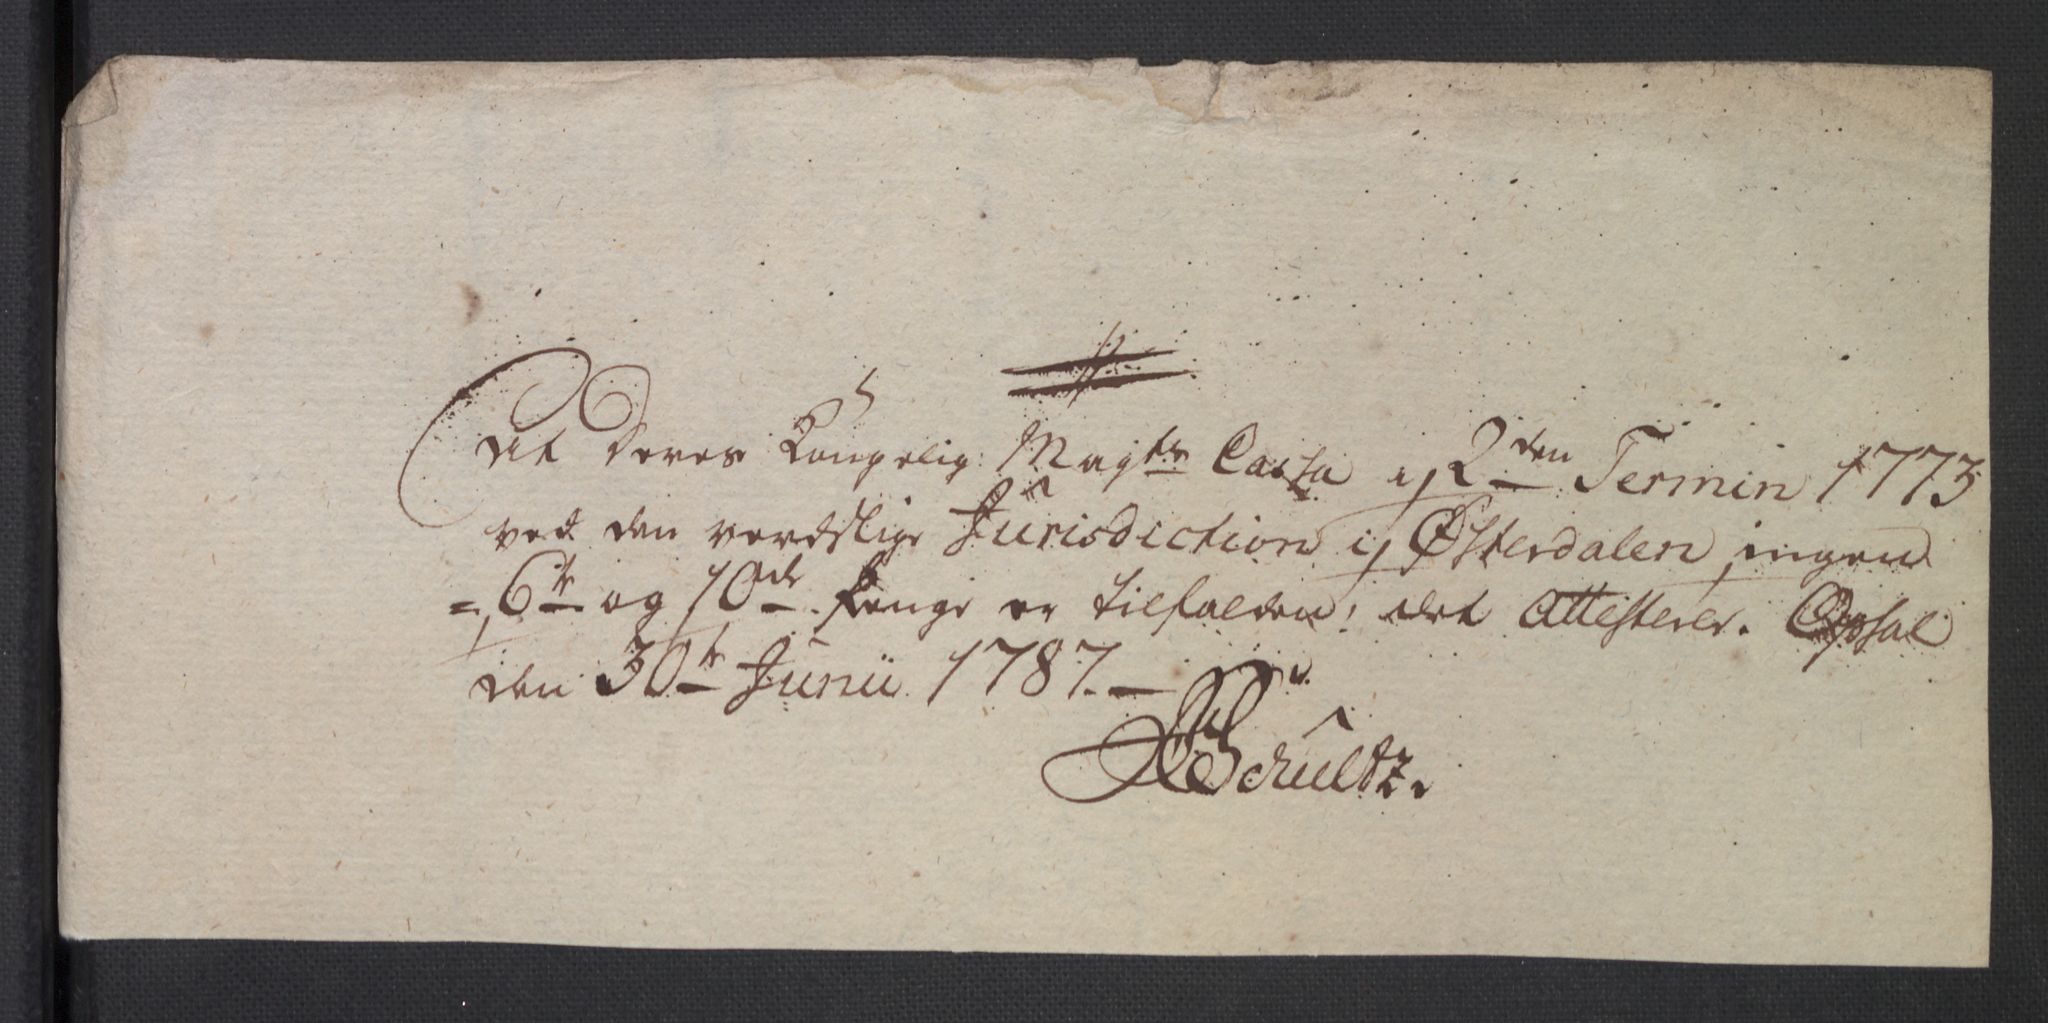 At Deres Kongelig: Mayts Cassa i 2den Termin 1773
ved den verdslige Jurisdiction i Østerdalen, ingen
=6te og 10de Penge er tilfalden; det Attesterer. Opsal
den 30te Junii 1787.
Schultz.